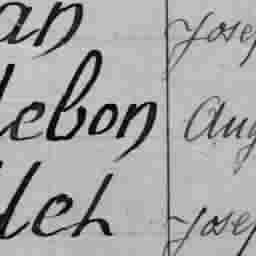 an Josep
lebon Aug
lleh Josep